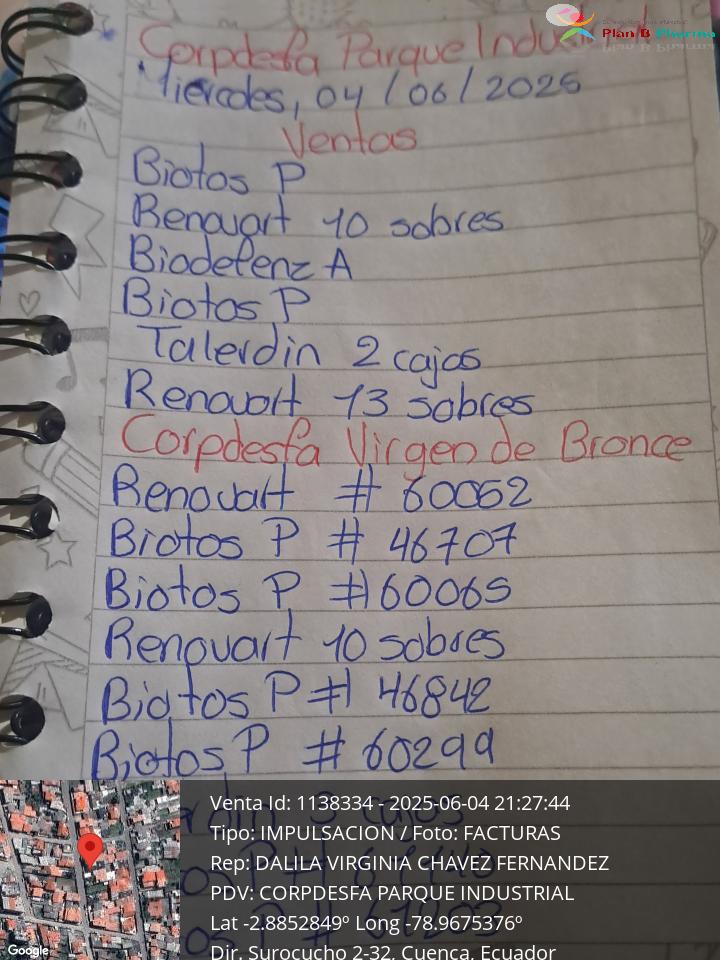 Plan B Pharma
Corpdesfa Parque Industrial
Miercoles, 04/06/2025
Ventas
Biotos P
Renovart 10 sobres
Biodefenz A
Biotos P
Talerdin 2 cajas
Renovart 13 sobres
Corpdesfa Virgen de Bronce
Renovart # 60062
Biotos P # 46707
Biotos P # 60065
Renovart 10 sobres
Biotos P # 46842
Biotos P # 60299
Venta Id: 1138334 - 2025-06-04 21:27:44
Tipo: IMPULSACION / Foto: FACTURAS
Rep: DALILA VIRGINIA CHAVEZ FERNANDEZ
PDV: CORPDESFA PARQUE INDUSTRIAL
Lat -2.8852849º Long -78.9675376º
Dir. Surocucho 2-32, Cuenca, Ecuador
Google